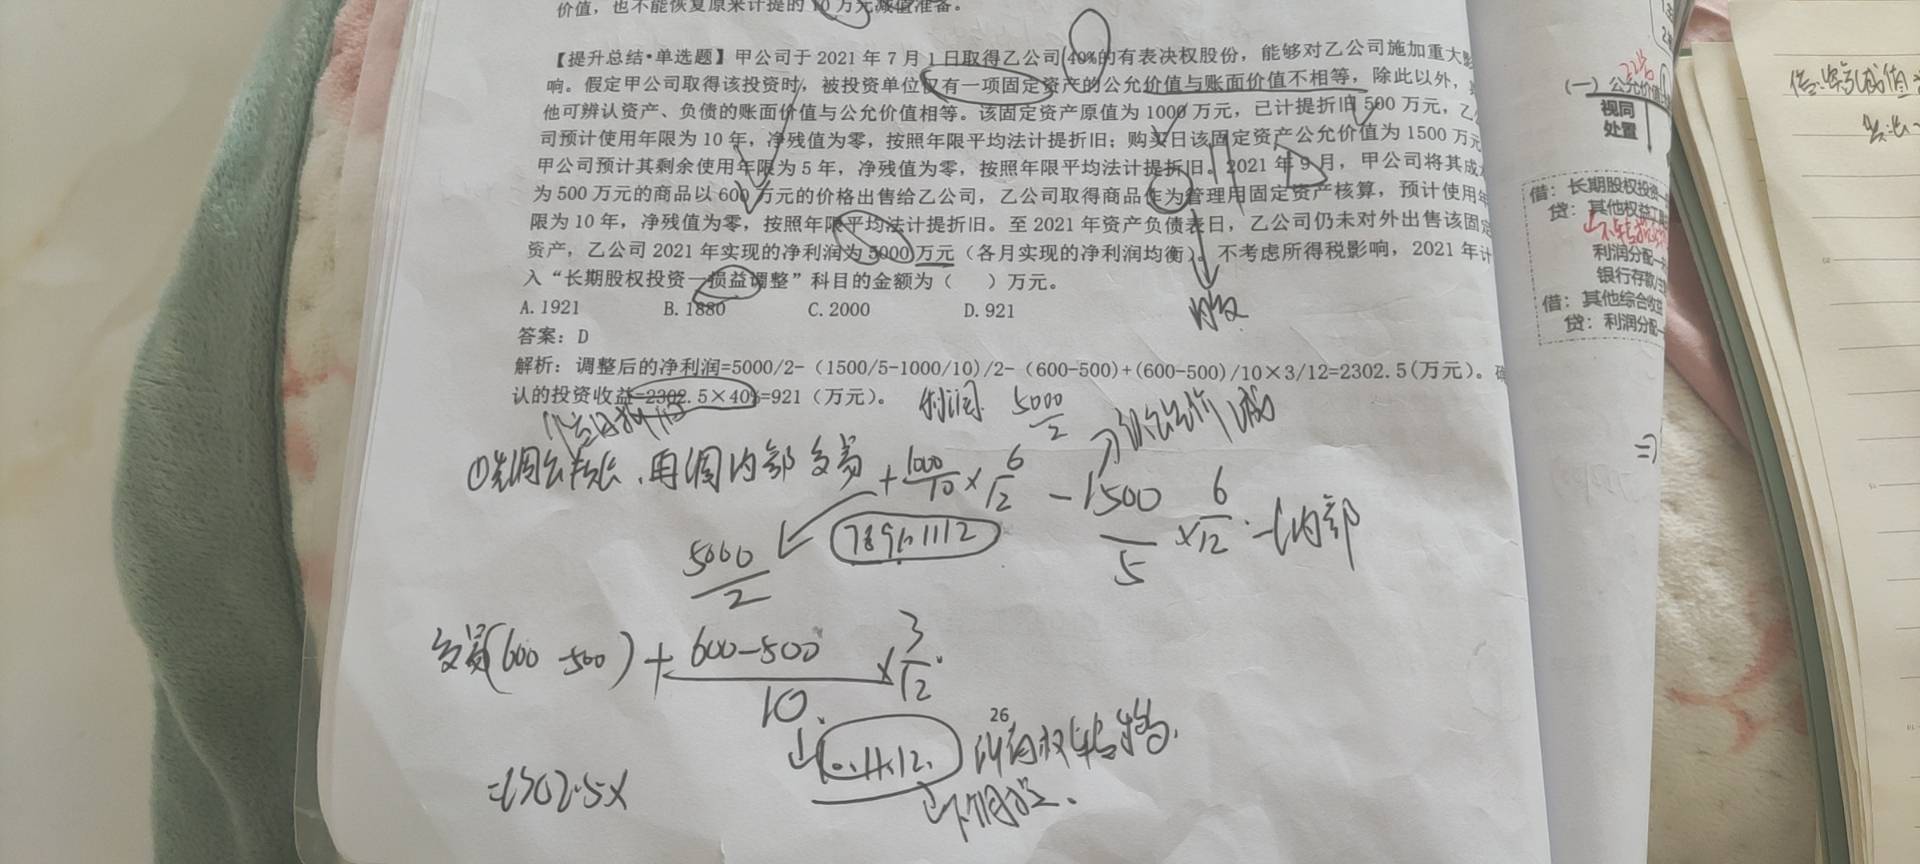 价值，也不能恢复原来计提的 10 万元减值准备。
【提升总结·单选题】甲公司于 2021 年 7 月 1 日取得乙公司 40%的有表决权股份，能够对乙公司施加重大影
响。假定甲公司取得该投资时，被投资单位仅有一项固定资产的公允价值与账面价值不相等，除此以外，
他可辨认资产、负债的账面价值与公允价值相等。该固定资产原值为 1000 万元，已计提折旧 500 万元，乙公
司预计使用年限为 10 年，净残值为零，按照年限平均法计提折旧；购买日该固定资产公允价值为 1500 万元
甲公司预计其剩余使用年限为 5 年，净残值为零，按照年限平均法计提折旧。2021 年 9 月，甲公司将其成
为 500 万元的商品以 600 万元的价格出售给乙公司，乙公司取得商品作为管理用固定资产核算，预计使用年
限为 10 年，净残值为零，按照年限平均法计提折旧。至 2021 年资产负债表日，乙公司仍未对外出售该固定
资产，乙公司 2021 年实现的净利润为 5000 万元（各月实现的净利润均衡）。不考虑所得税影响，2021 年计
入“长期股权投资—损益调整”科目的金额为（ ）万元。
A. 1921 B. 1880 C. 2000 D. 921
答案：D
解析：调整后的净利润=5000/2-（1500/5-1000/10）/2-（600-500）+(600-500)/10×3/12=2302.5(万元)。确
认的投资收益=2302.5×40%=921（万元）。
利润 5000/2
再调内部交易 + 1000/10 × 6/12 - 1500/5 × 6/12 - 内部
5000/2 789101112
交易(600 - 500) + 600-500/10 × 3/12
26
(一) 公允价值
视同
处置
借：长期股权投资
贷：其他权益工具
利润分配
银行存款
借：其他综合收益
贷：利润分配